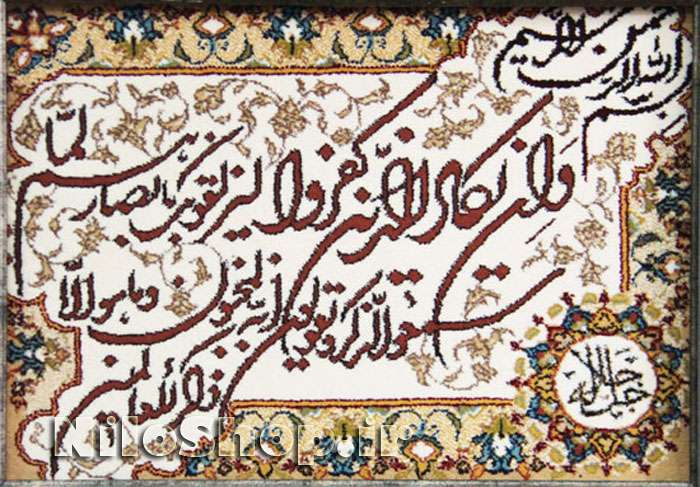 بسم الله الرحمن الرحیم
وان یکاد الذین کفروا لیزلقونک بابصارهم لما
سمعوا الذکر و یقولون انه لمجنون و ما هو الا
ذکر للعالمین
جل جلاله
Niloshop.ir